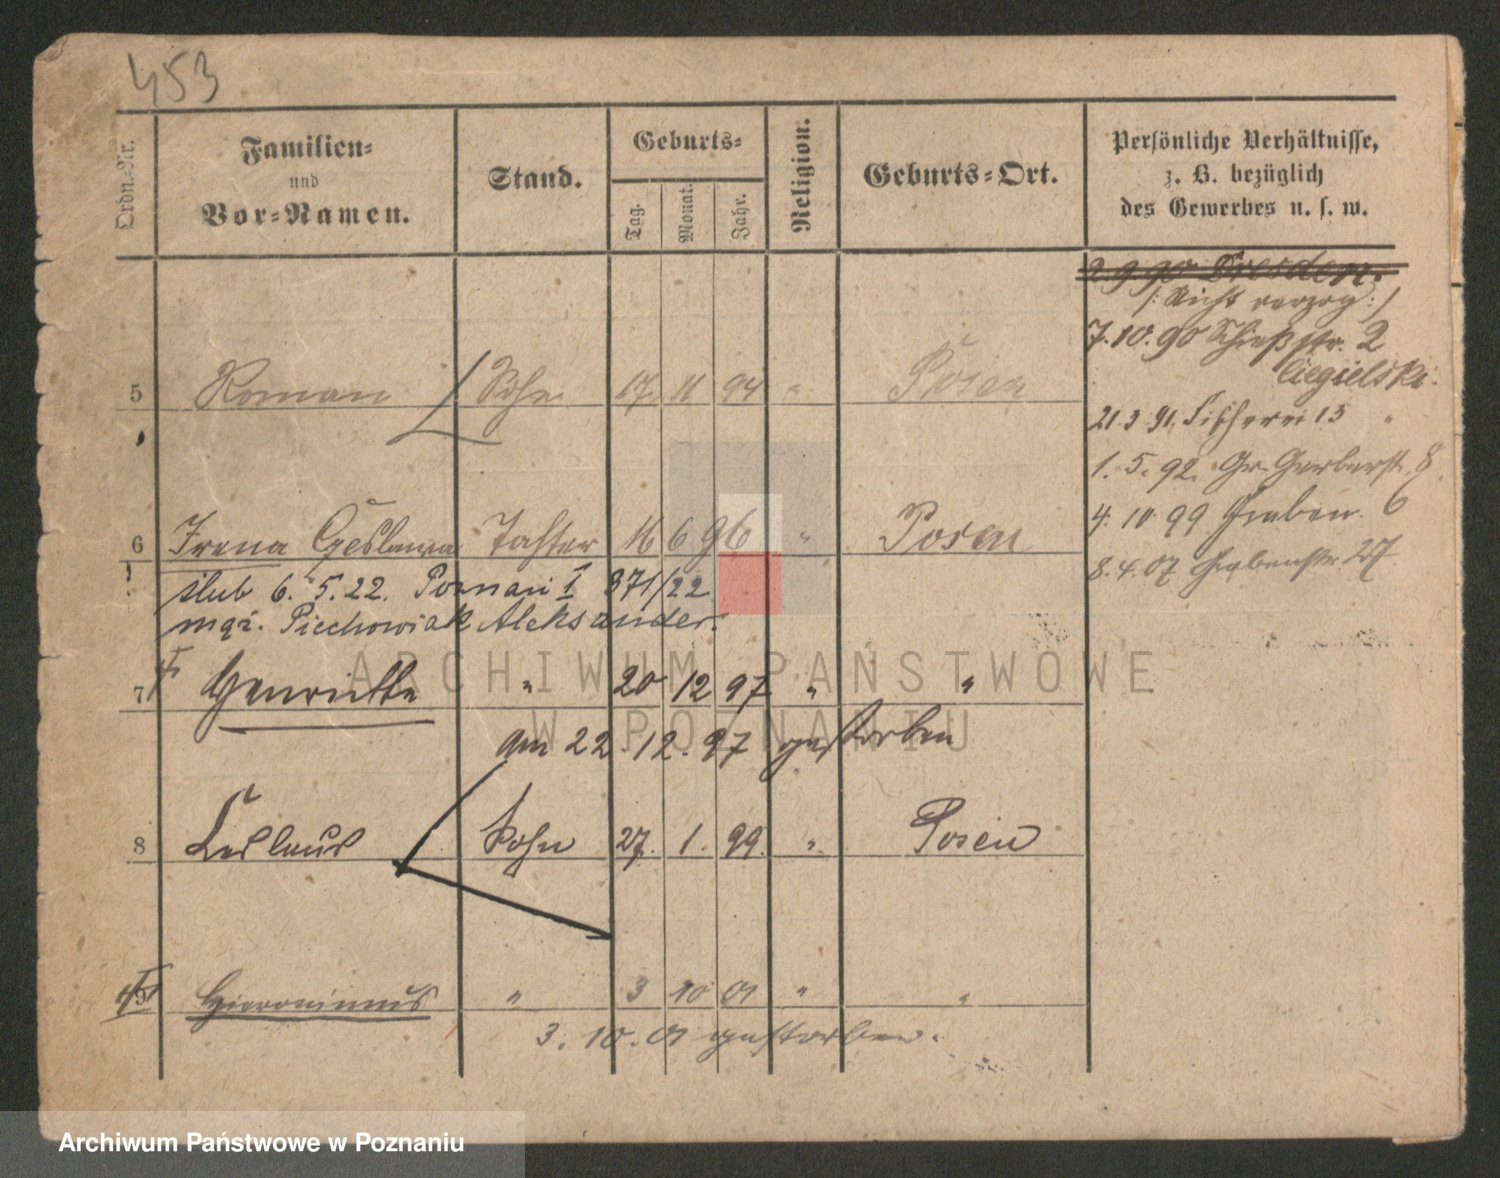 453
Ordn.-Nr.
Familien- und Vor-Namen.
Stand.
Geburts-
Tag.
Monat.
Jahr.
Religion.
Geburts-Ort.
Persönliche Verhältnisse,
z. B. bezüglich
des Gewerbes u. s. w.
2 9 90 Dresden.
/: Nicht verzog. :/
7.10.90 Schießstr. 2
Cegielski.
21.3.91. Fischerei 13 "
1.5.92. Gr. Gerberstr. 8
4.10 99 Graben. 6
8.4.07 Grabenstr 27
5 Roman Sohn 17. 11 94 " Posen
6 Irena Česlawa Tochter 16 6 96 " Posen
ślub 6.5.22. Poznań I 871/22
mąż. Piechowiak Aleksander.
7 Henriette " 20 12 97 " "
am 22.12.97 gestorben
8 Ceslaus Sohn 27. 1. 99. " Posen
9 Hieronimus " 3 10 01 " "
3.10.01 gestorben.
ARCHIWUM PAŃSTWOWE
W POZNANIU
Archiwum Państwowe w Poznaniu